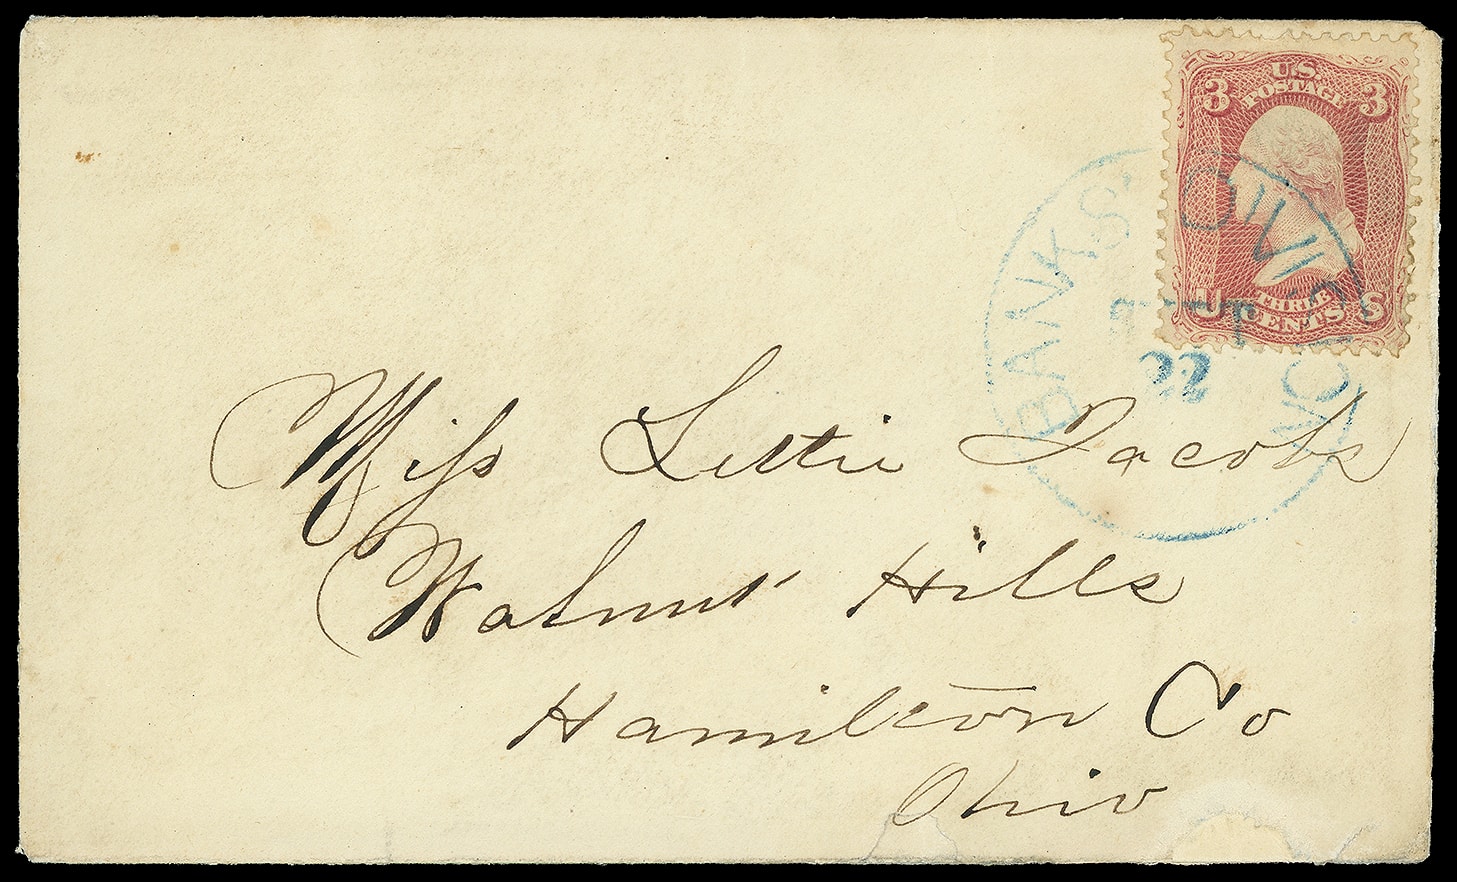 3 U.S. 3
POSTAGE
THREE
U CENTS S
BANKS
22
Miss Lettie Jacobs
Walnut Hills
Hamilton Co
Ohio